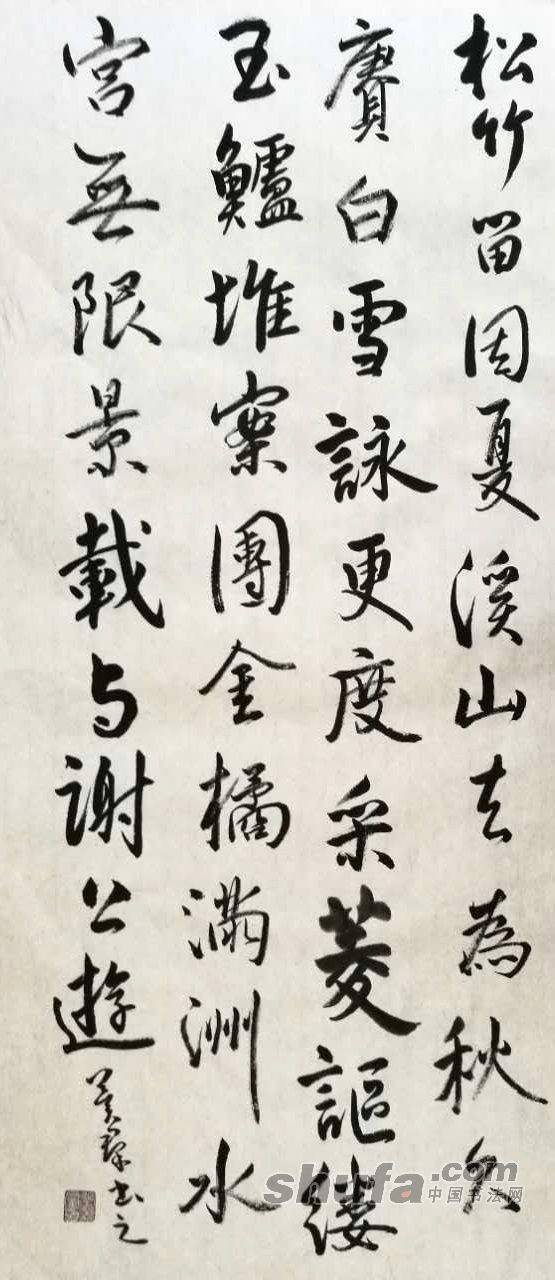 松竹留因夏溪山去為秋久
賡白雪詠更度采菱謳縷
玉鱸堆案團金橘滿洲水
宮無限景載与謝公遊
书之
shufa.com
中国书法网